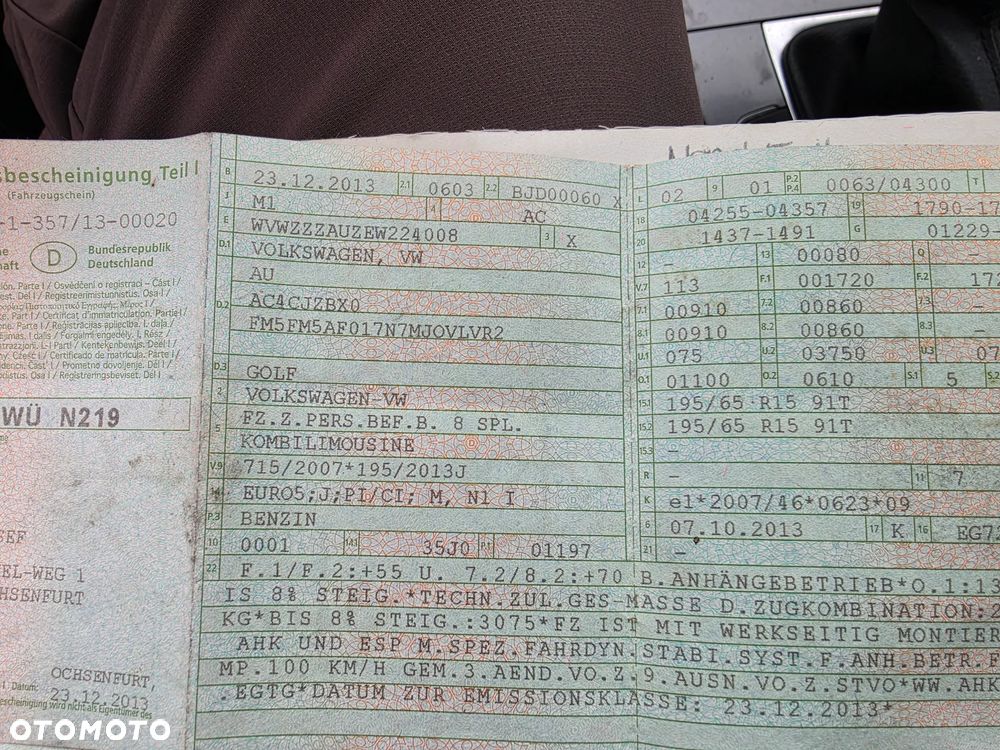 sbescheinigung, Teil I
(Fahrzeugschein)
-1-357/13-00020
D
Bundesrepublik
Deutschland
WÜ N219
EL-WEG 1
OCHSENFURT,
Datum: 23.12.2013
B 23.12.2013 2.1 0603 2.2 BJD00060 X
J M1 4 AC
E WVWZZZAUZEW224008 3 X
D.1 VOLKSWAGEN, VW
AU
D.2 AC4CJZBX0
FM5FM5AF017N7MJOVLVR2
D.3 GOLF
2 VOLKSWAGEN VW
5 FZ.Z.PERS.BEF.B. 8 SPL.
KOMBILIMOUSINE
V.9 715/2007*195/2013J
14 EURO5;J;PI/CI; M, N1 I
P.3 BENZIN
10 0001 14.1 35J0 P.1 01197
L 02 9 01 P.2 P.4 0063/04300 T
18 04255-04357 19 1790-17
20 1437-1491 G 01229-
12 – 13 00080 Q –
V.7 113 F.1 001720 F.2 17
7.1 00910 7.2 00860 7.3 –
8.1 00910 8.2 00860 8.3 –
U.1 075 U.2 03750 U.3 07
O.1 01100 O.2 0610 S.1 5 S.2
15.1 195/65 R15 91T
15.2 195/65 R15 91T
15.3 –
R – 11 7
K e1*2007/46*0623*09
6 07.10.2013 17 K 16 EG7
21 –
22 F.1/F.2:+55 U. 7.2/8.2:+70 B.ANHÄNGEBETRIEB*O.1:13
IS 8% STEIG.*TECHN.ZUL.GES-MASSE D.ZUGKOMBINATION:2
KG*BIS 8% STEIG.:3075*FZ IST MIT WERKSEITIG MONTIER
AHK UND ESP M.SPEZ.FAHRDYN.STABI.SYST.F.ANH.BETR.E
MP.100 KM/H GEM.3.AEND.VO.Z.9.AUSN.VO.Z.STVO*WW.AHK
.EGTG*DATUM ZUR EMISSIONSKLASSE: 23.12.2013*
OTOMOTO